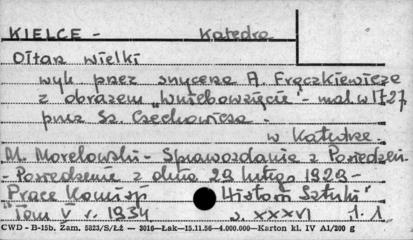 KIELCE - Katedra
Ołtarz wielki
wyk przez snycerza A. Frączkiewicza
z obrazem „Wniebowzięcie" - mal. w 1727
przez Sz. Czechowicza.
w Katedrze.
M. Morelowski - Sprawozdania z Posiedzeń.
- Posiedzenie z dnia 29 lutego 1929 -
Prace Komisji Historii Sztuki"
Tom V r. 1934 s. XXXVI il. 1.
CWD - B-15b. Zam. 5823/S/Łż — 3016—Łak—15.11.56—4.000.000—Karton kl. IV A1/200 g